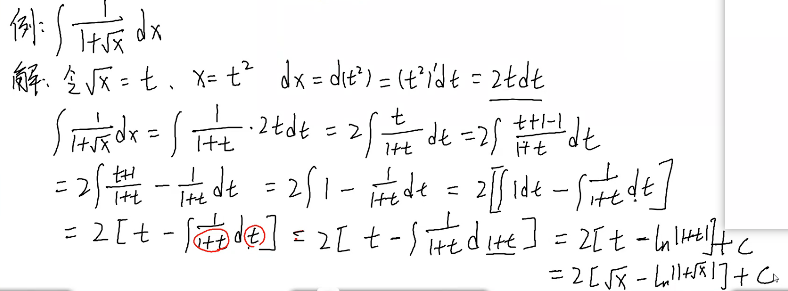 例: ∫ 1/(1+√x) dx
解: 令√x = t、 x = t² dx = d(t²) = (t²)'dt = 2tdt
∫ 1/(1+√x) dx = ∫ 1/(1+t) · 2tdt = 2∫ t/(1+t) dt = 2∫ (t+1-1)/(1+t) dt
= 2∫ (t+1)/(1+t) - 1/(1+t) dt = 2∫ 1 - 1/(1+t) dt = 2[∫1dt - ∫ 1/(1+t) dt]
= 2[t - ∫ 1/(1+t) dt] = 2[t - ∫ 1/(1+t) d 1+t] = 2[t - ln|1+t|] + C
= 2[√x - ln|1+√x|] + C